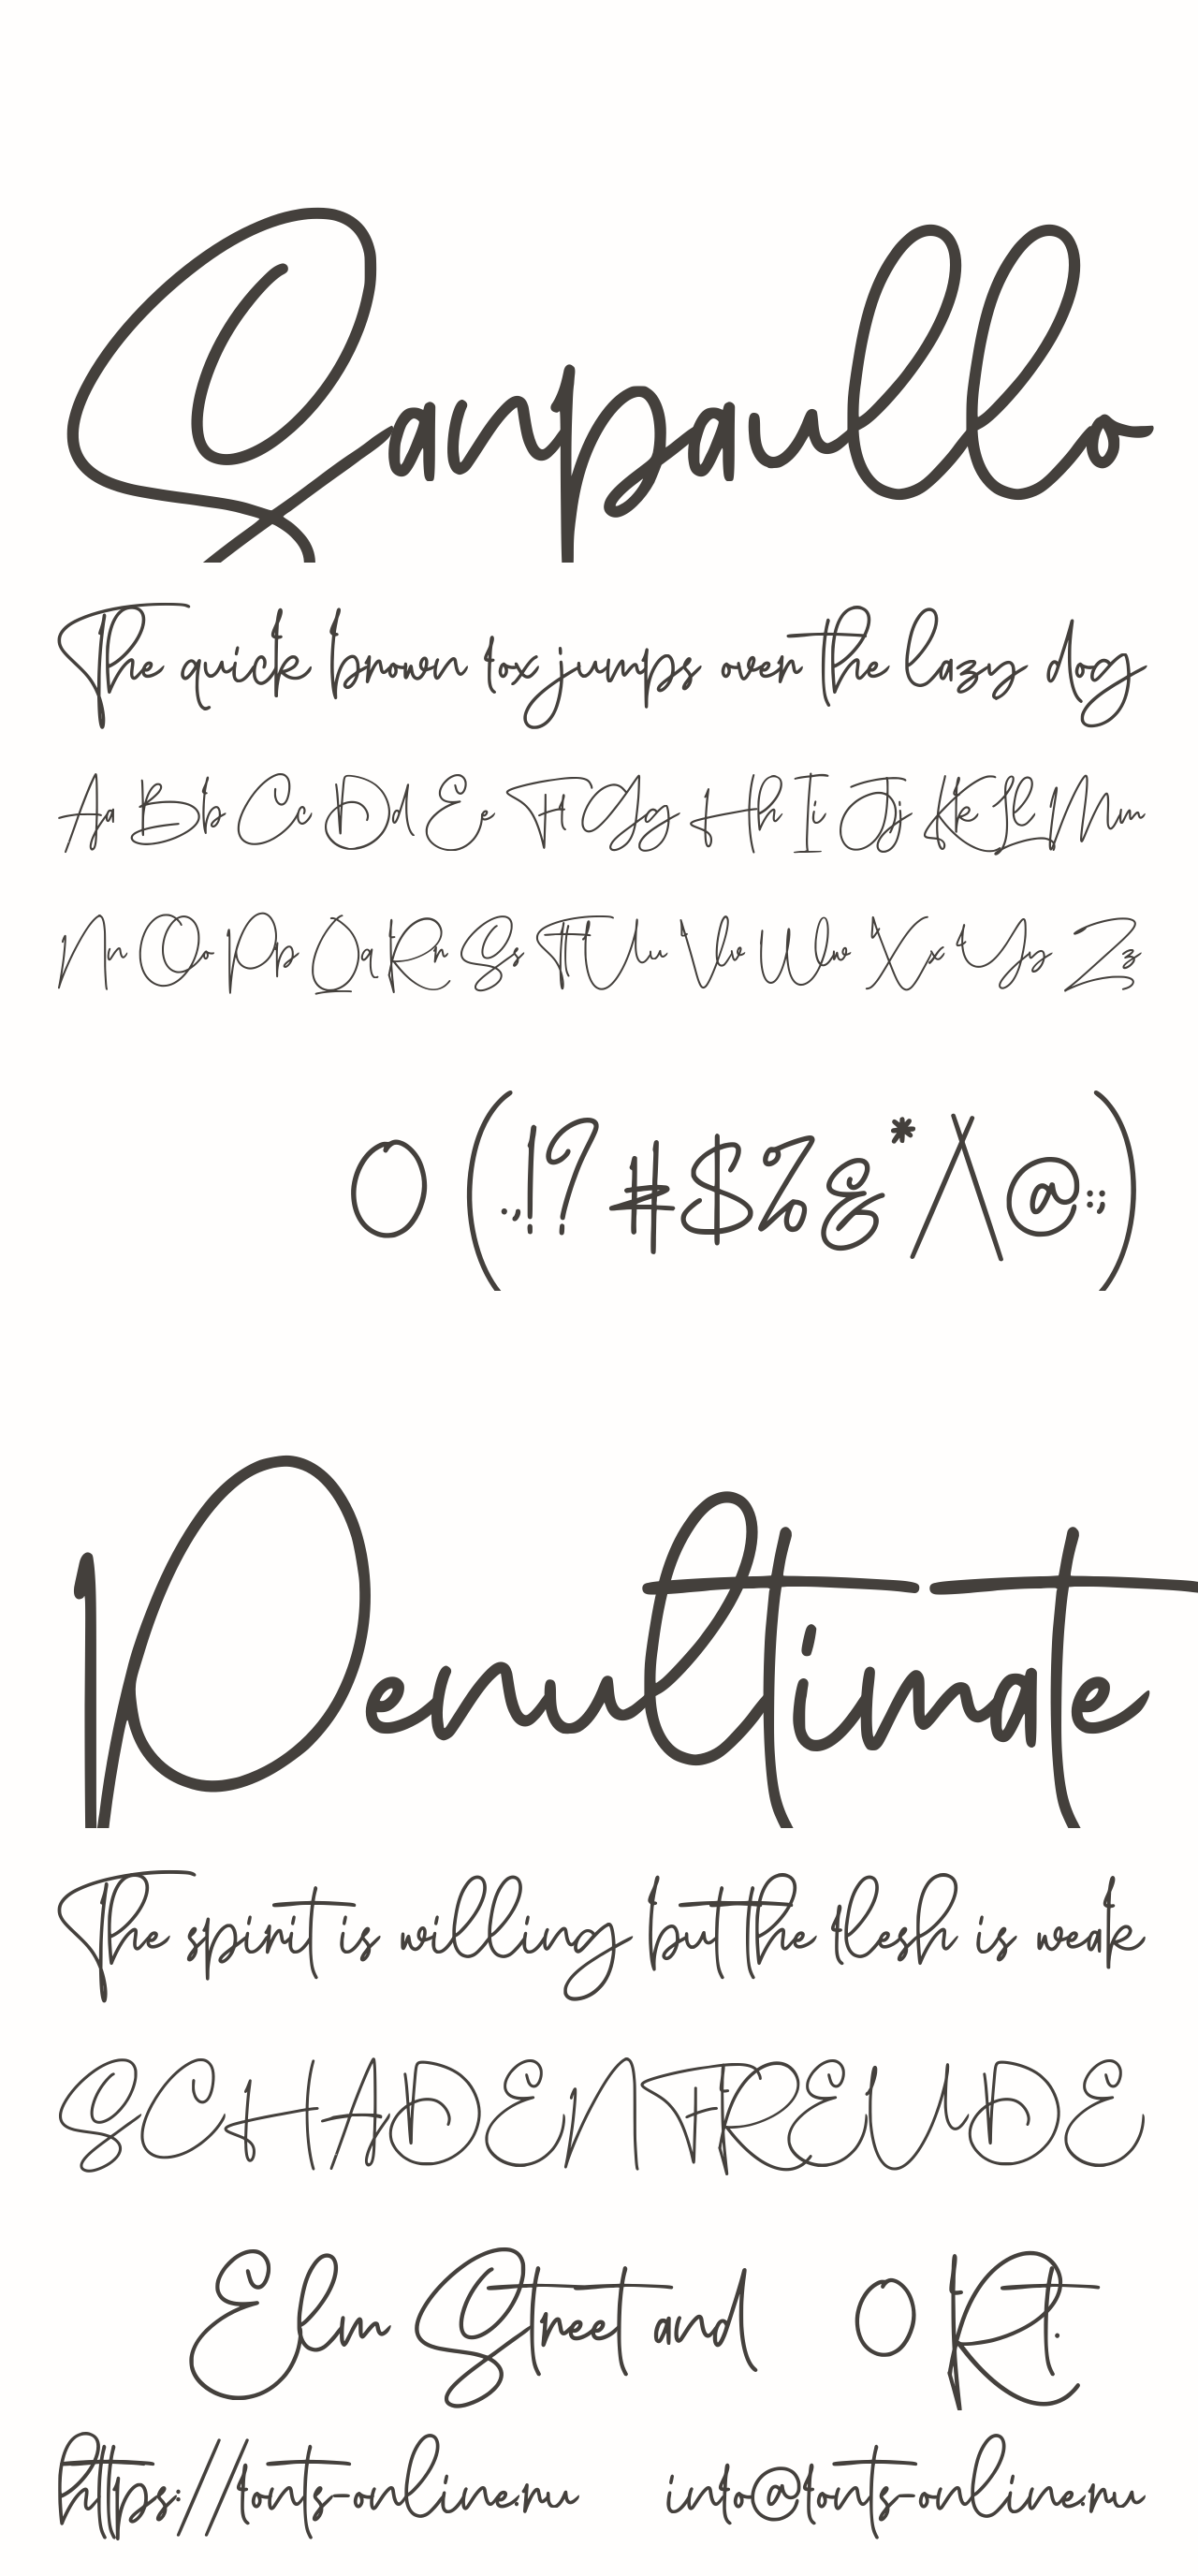 Sanpaullo
The quick brown fox jumps over the lazy dog
Aa Bb Cc Dd Ee Ff Gg Hh Ii Jj Kk Ll Mm
Nn Oo Pp Qq Rr Ss Tt Uu Vv Ww Xx Yy Zz
0 (.,!?#$%&*/\@:;)
Penultimate
The spirit is willing but the flesh is weak
SCHADENFREUDE
Elm Street and 0 Rt.
https://fonts-online.ru info@fonts-online.ru